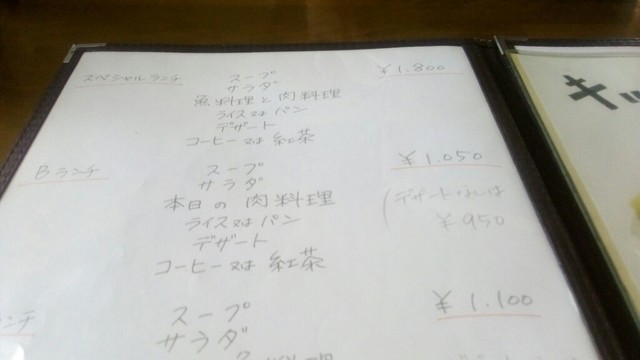 スペシャルランチ
スープ
¥1.800
サラダ
魚料理と肉料理
ライス又はパン
デザート
コーヒー又は紅茶
Bランチ
スープ
¥1.050
サラダ
本日の肉料理
(デザートなしは
ライス又はパン
¥950
デザート
コーヒー又は紅茶
ンチ
スープ
¥1.100
サラダ
料理
キッ